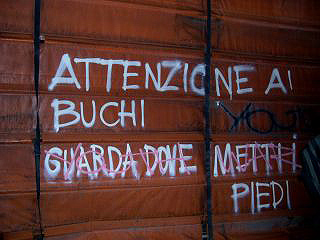 ATTENZIONE AI
BUCHI
GUARDA DOVE METTI I
PIEDI